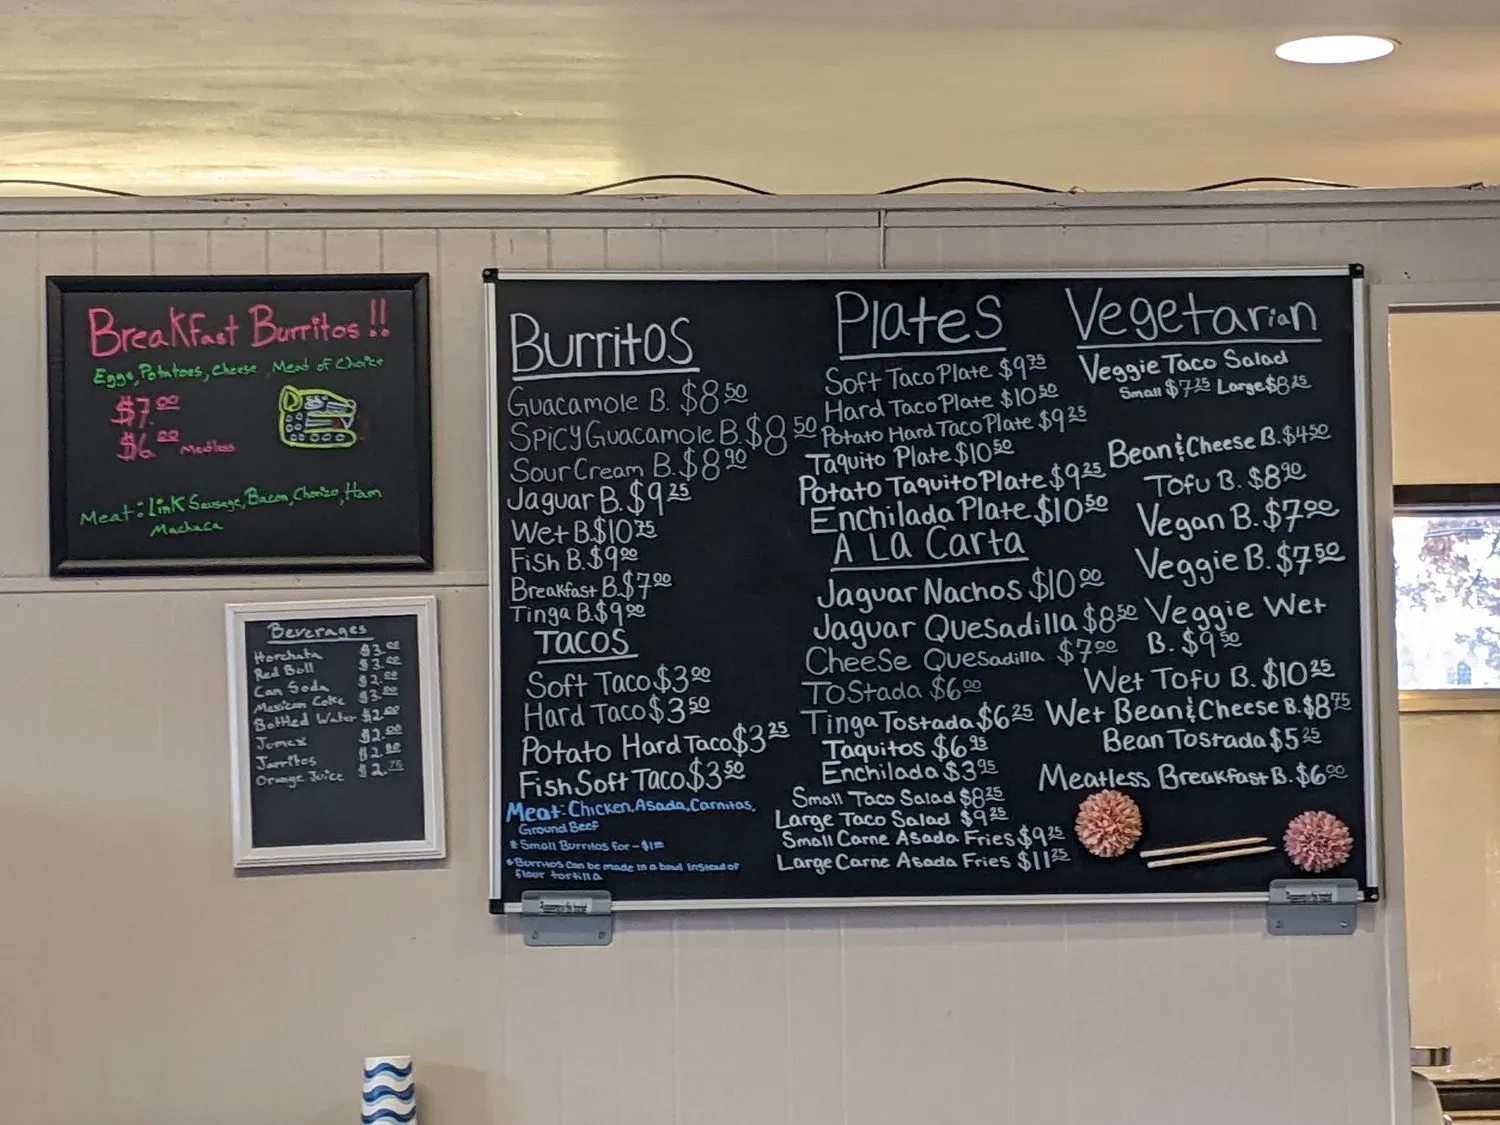 Breakfast Burritos!!
Eggs, Potatoes, Cheese, Meat of Choice
$7.00
$6.00 Meatless
Meat: Link Sausage, Bacon, Chorizo, Ham
Machaca
Beverages
Horchata $3.00
Red Bull $3.00
Can Soda $2.00
Mexican Coke $3.00
Bottled Water $2.00
Jumex $2.00
Jarritos $2.00
Orange Juice $2.75
Burritos
Guacamole B. $8.50
Spicy Guacamole B. $8.50
Sour Cream B. $8.90
Jaguar B. $9.25
Wet B. $10.75
Fish B. $9.00
Breakfast B. $7.00
Tinga B. $9.00
Tacos
Soft Taco $3.00
Hard Taco $3.50
Potato Hard Taco $3.25
Fish Soft Taco $3.50
Meat: Chicken, Asada, Carnitas,
Ground Beef
* Small Burritos for -$1.00
* Burritos can be made in a bowl instead of
flour tortilla
Plates
Soft Taco Plate $9.75
Hard Taco Plate $10.50
Potato Hard Taco Plate $9.25
Taquito Plate $10.50
Potato Taquito Plate $9.25
Enchilada Plate $10.50
A La Carta
Jaguar Nachos $10.00
Jaguar Quesadilla $8.50
Cheese Quesadilla $7.00
Tostada $6.00
Tinga Tostada $6.25
Taquitos $6.95
Enchilada $3.95
Small Taco Salad $8.25
Large Taco Salad $9.25
Small Carne Asada Fries $9.25
Large Carne Asada Fries $11.25
Vegetarian
Veggie Taco Salad
Small $7.25 Large $8.25
Bean & Cheese B. $4.50
Tofu B. $8.90
Vegan B. $7.00
Veggie B. $7.50
Veggie Wet
B. $9.50
Wet Tofu B. $10.25
Wet Bean & Cheese B. $8.75
Bean Tostada $5.25
Meatless Breakfast B. $6.00